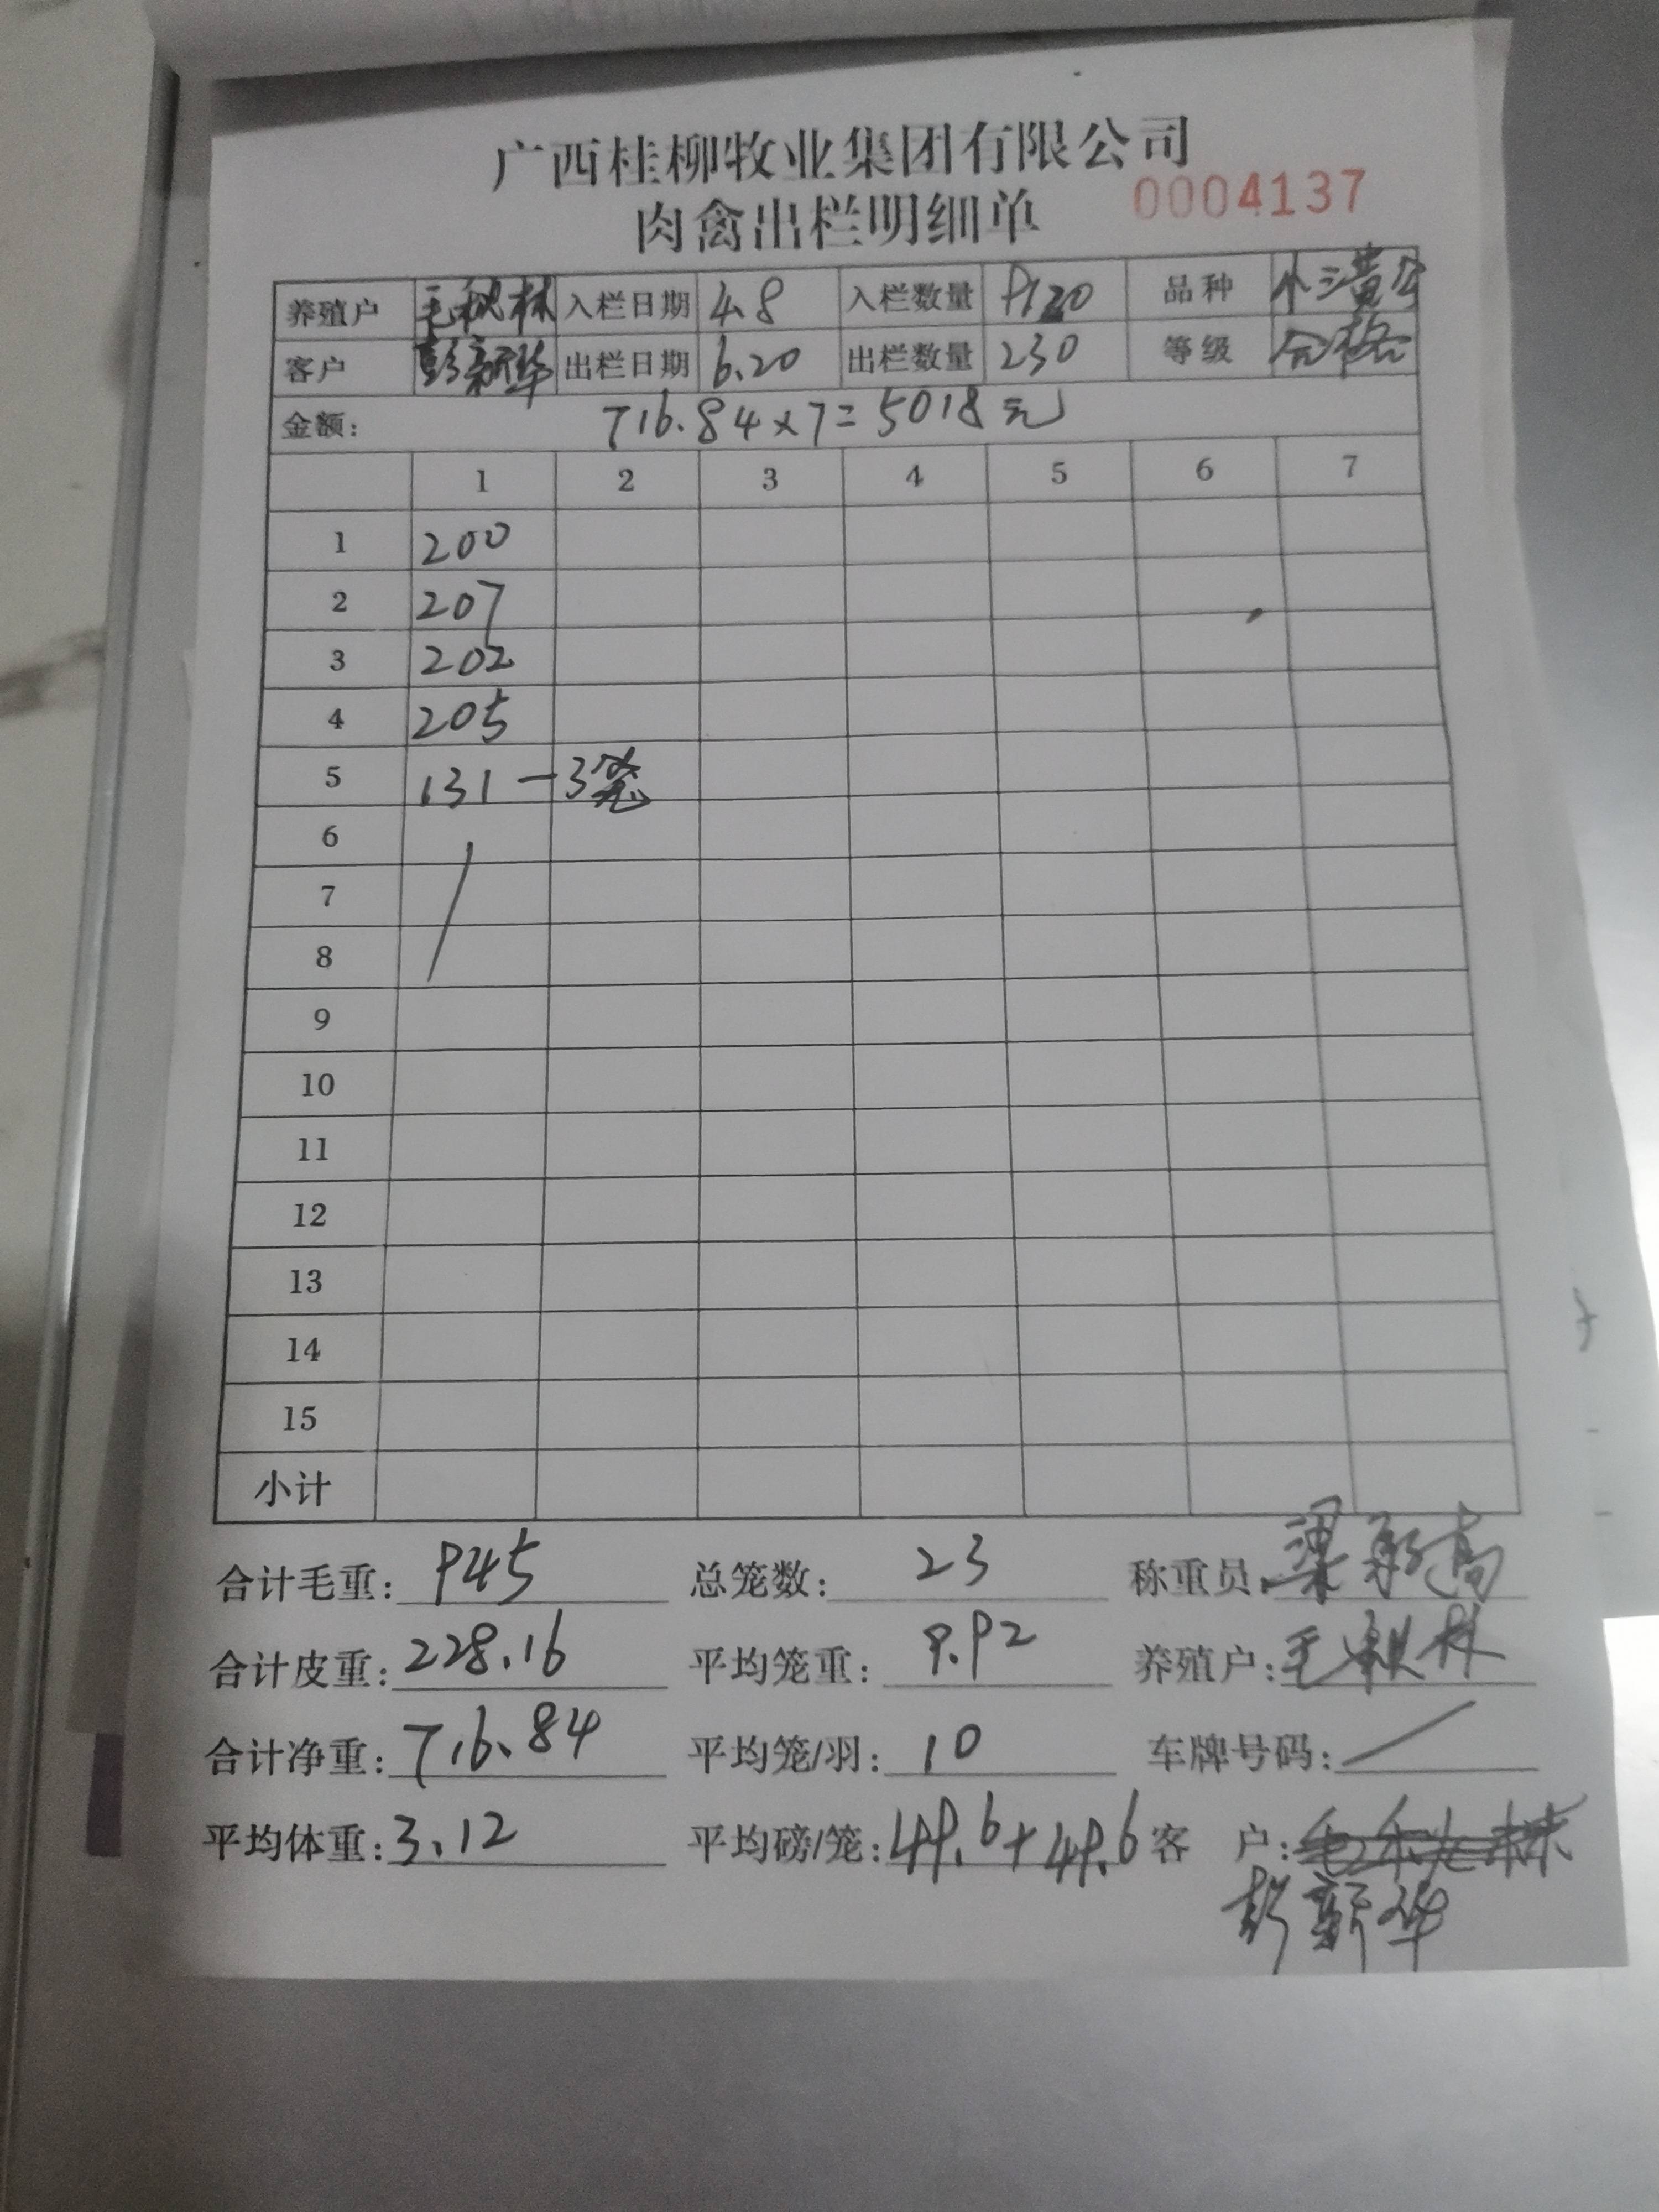 广西桂柳牧业集团有限公司
肉禽出栏明细单 0004137
养殖户 毛秋林 入栏日期 4.8 入栏数量 9120 品种 小三黄公
客户 彭新华 出栏日期 6.20 出栏数量 230 等级 合格
金额: 716.84×7=5018元
1 2 3 4 5 6 7
1 200
2 207
3 202
4 205
5 131 — 3笼
6
7
8
9
10
11
12
13
14
15
小计
合计毛重: 945 总笼数: 23 称重员: 梁
合计皮重: 228.16 平均笼重: 9.92 养殖户: 毛秋林
合计净重: 716.84 平均笼/羽: 10 车牌号码: /
平均体重: 3.12 平均磅/笼: 49.6+49.6 客 户: 毛秋林
彭新华